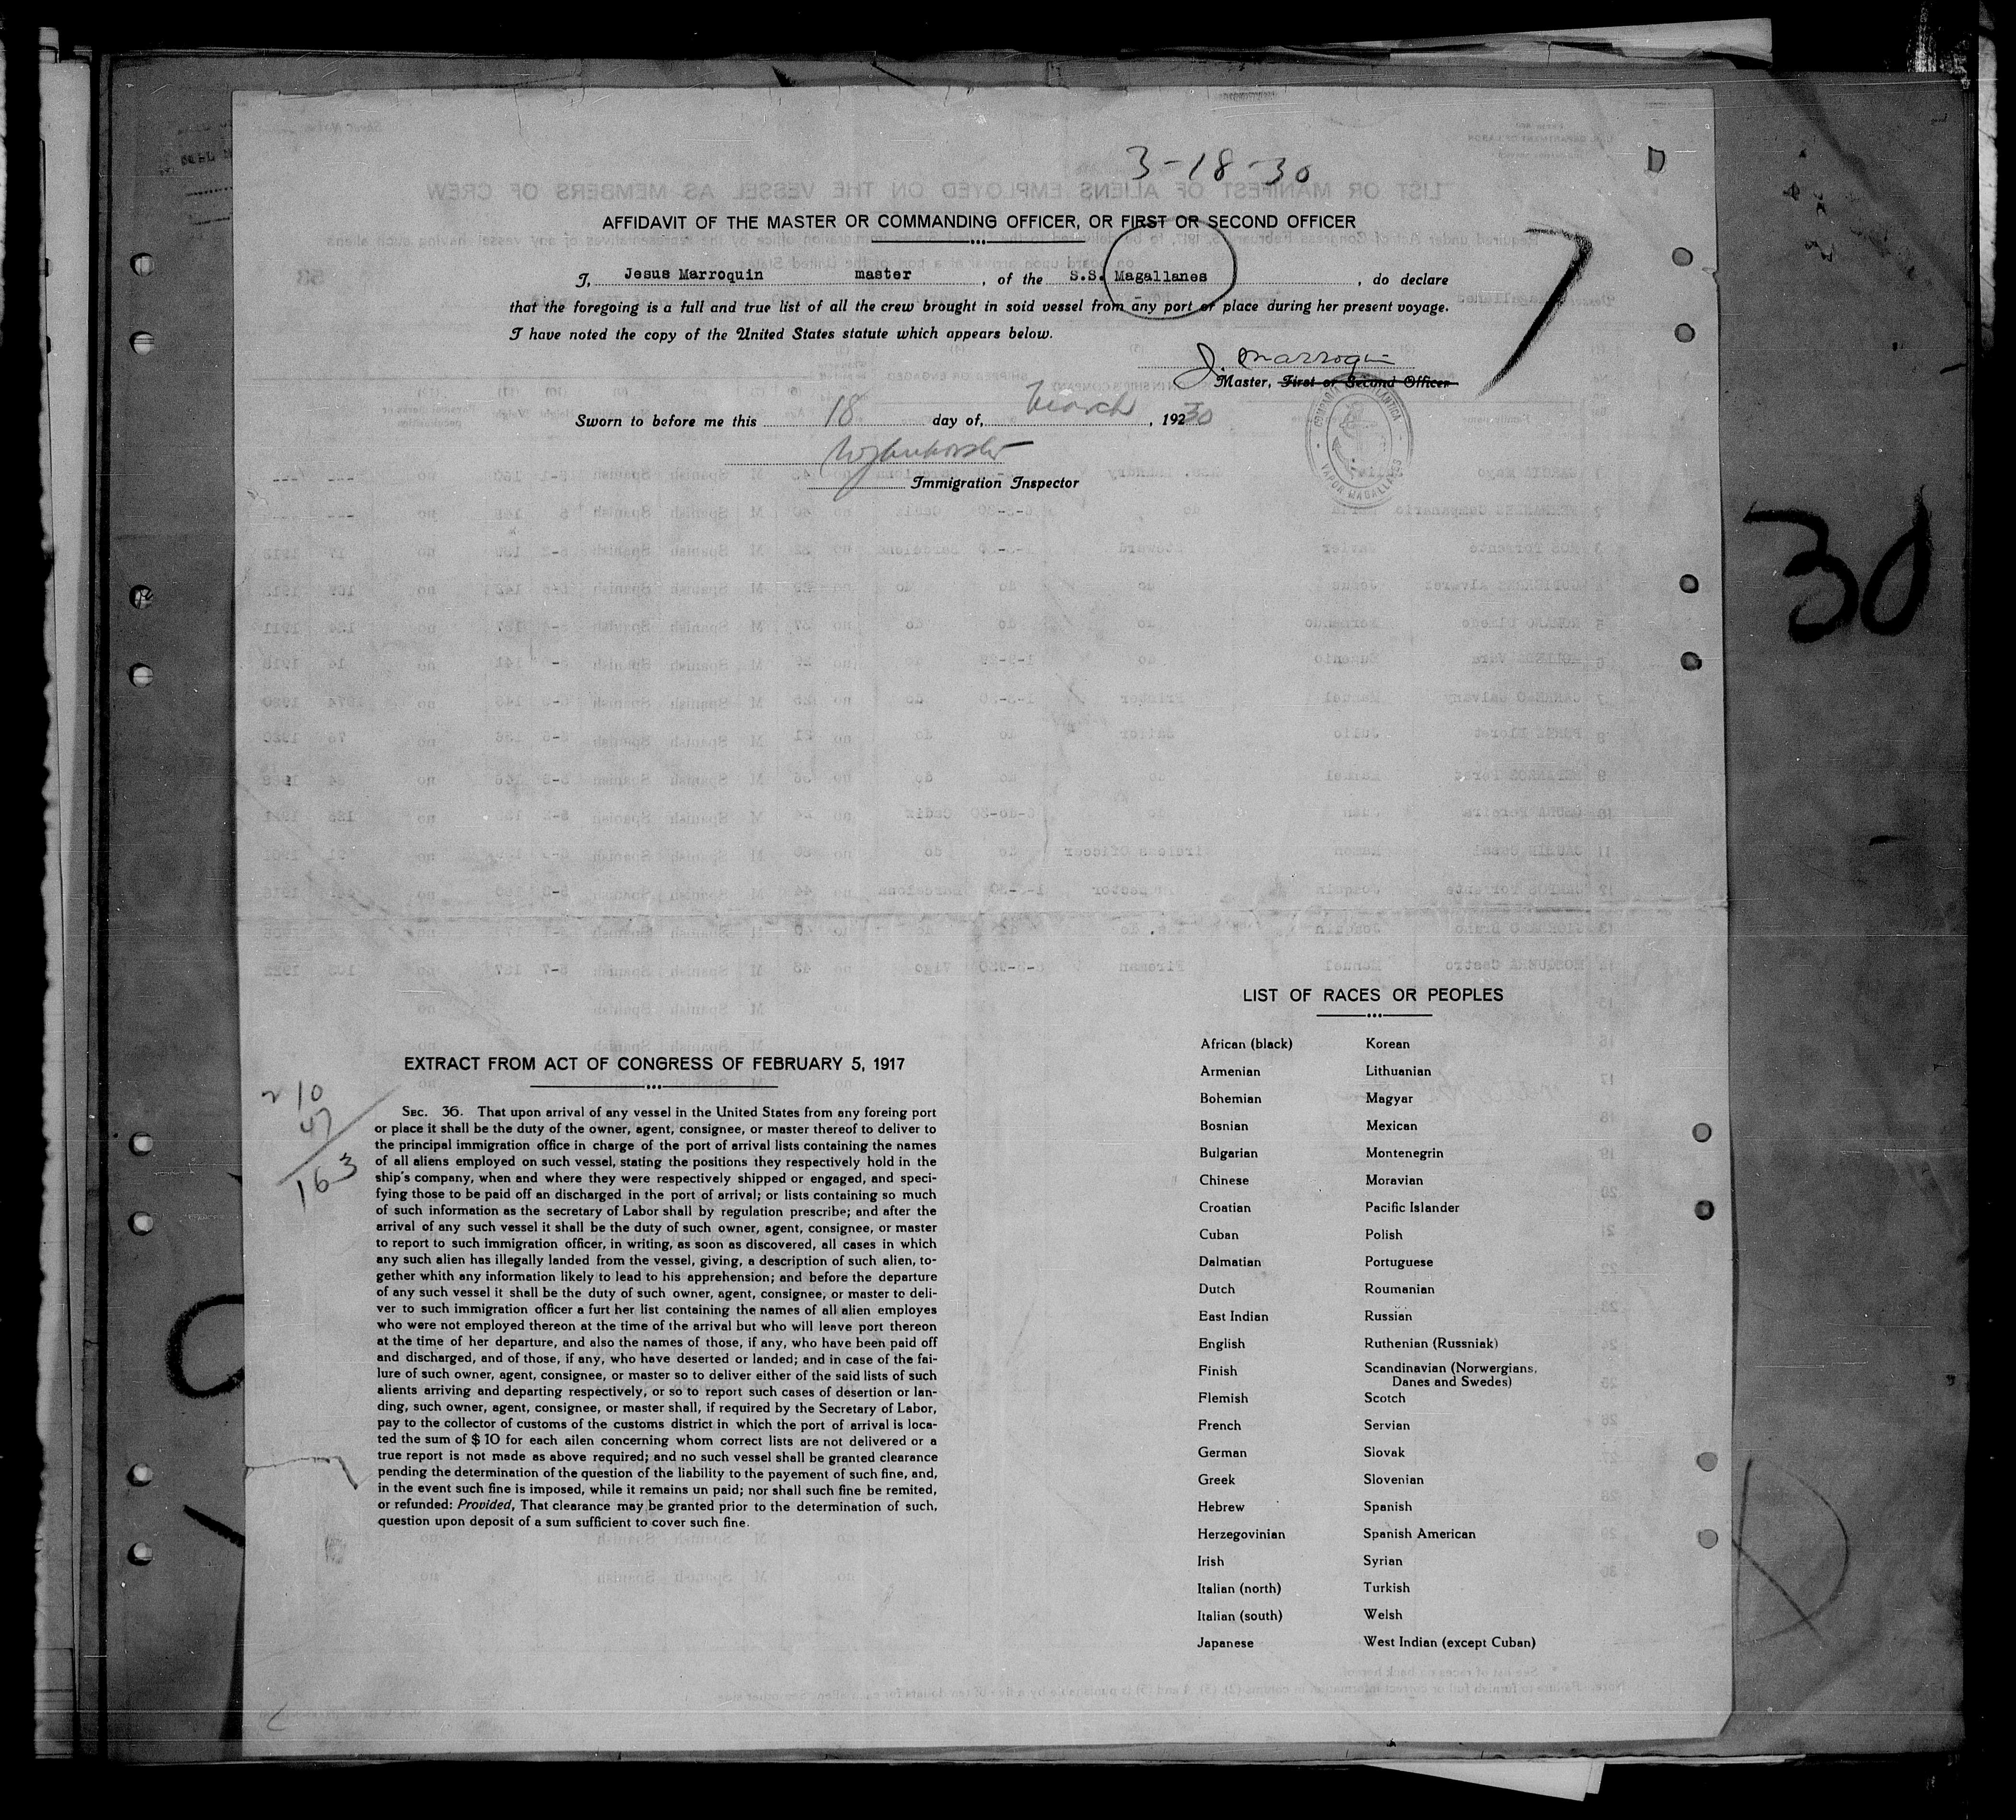 3-18-30
AFFIDAVIT OF THE MASTER OR COMMANDING OFFICER, OR FIRST OR SECOND OFFICER
I, Jesus Marroquin master, of the S.S. Magallanes, do declare
that the foregoing is a full and true list of all the crew brought in soid vessel from any port or place during her present voyage.
I have noted the copy of the United States statute which appears below.
J. Marroquin
Master, First or Second Officer
Sworn to before me this 18 day of, March, 1930
Immigration Inspector
VAPOR MAGALLANES
7
30
LIST OF RACES OR PEOPLES
African (black) Korean
Armenian Lithuanian
Bohemian Magyar
Bosnian Mexican
Bulgarian Montenegrin
Chinese Moravian
Croatian Pacific Islander
Cuban Polish
Dalmatian Portuguese
Dutch Roumanian
East Indian Russian
English Ruthenian (Russniak)
Finish Scandinavian (Norwergians,
Danes and Swedes)
Flemish Scotch
French Servian
German Slovak
Greek Slovenian
Hebrew Spanish
Herzegovinian Spanish American
Irish Syrian
Italian (north) Turkish
Italian (south) Welsh
Japanese West Indian (except Cuban)
EXTRACT FROM ACT OF CONGRESS OF FEBRUARY 5, 1917
210
47
163
SEC. 36. That upon arrival of any vessel in the United States from any foreing port
or place it shall be the duty of the owner, agent, consignee, or master thereof to deliver to
the principal immigration office in charge of the port of arrival lists containing the names
of all aliens employed on such vessel, stating the positions they respectively hold in the
ship's company, when and where they were respectively shipped or engaged, and speci-
fying those to be paid off an discharged in the port of arrival; or lists containing so much
of such information as the secretary of Labor shall by regulation prescribe; and after the
arrival of any such vessel it shall be the duty of such owner, agent, consignee, or master
to report to such immigration officer, in writing, as soon as discovered, all cases in which
any such alien has illegally landed from the vessel, giving, a description of such alien, to-
gether whith any information likely to lead to his apprehension; and before the departure
of any such vessel it shall be the duty of such owner, agent, consignee, or master to deli-
ver to such immigration officer a furt her list containing the names of all alien employes
who were not employed thereon at the time of the arrival but who will leave port thereon
at the time of her departure, and also the names of those, if any, who have been paid off
and discharged, and of those, if any, who have deserted or landed; and in case of the fai-
lure of such owner, agent, consignee, or master so to deliver either of the said lists of such
alients arriving and departing respectively, or so to report such cases of desertion or lan-
ding, such owner, agent, consignee, or master shall, if required by the Secretary of Labor,
pay to the collector of customs of the customs district in which the port of arrival is loca-
ted the sum of $ 10 for each ailen concerning whom correct lists are not delivered or a
true report is not made as above required; and no such vessel shall be granted clearance
pending the determination of the question of the liability to the payement of such fine, and,
in the event such fine is imposed, while it remains un paid; nor shall such fine be remited,
or refunded: Provided, That clearance may be granted prior to the determination of such,
question upon deposit of a sum sufficient to cover such fine.